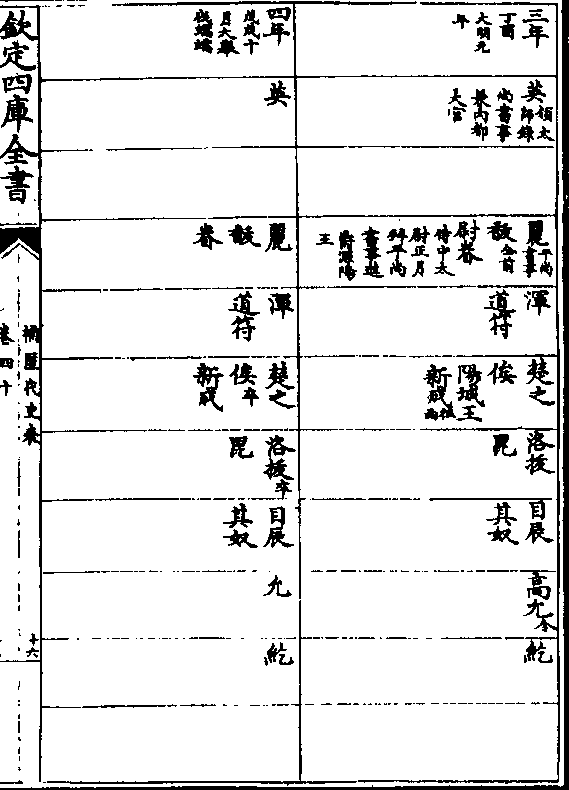 三年
丁酉
大明元
年
英
領太
師錄
尚書事
兼內都
大官
麗
平尚
書事
馛
全前
尉眷
侍中太
尉正月
錄平尚
書事進
爵漁陽
王
渾
道符
楚之
俟
陽城王
新成
洛拔
毘
目辰
其奴
高允
令
紇
四年
戊戌十
月大舉
伐蠕蠕
英
麗
馛
眷
渾
道符
楚之
俟
卒
新成
洛拔
卒
毘
目辰
其奴
允
紇
欽定四庫全書
補歷代史表
卷四十
十六